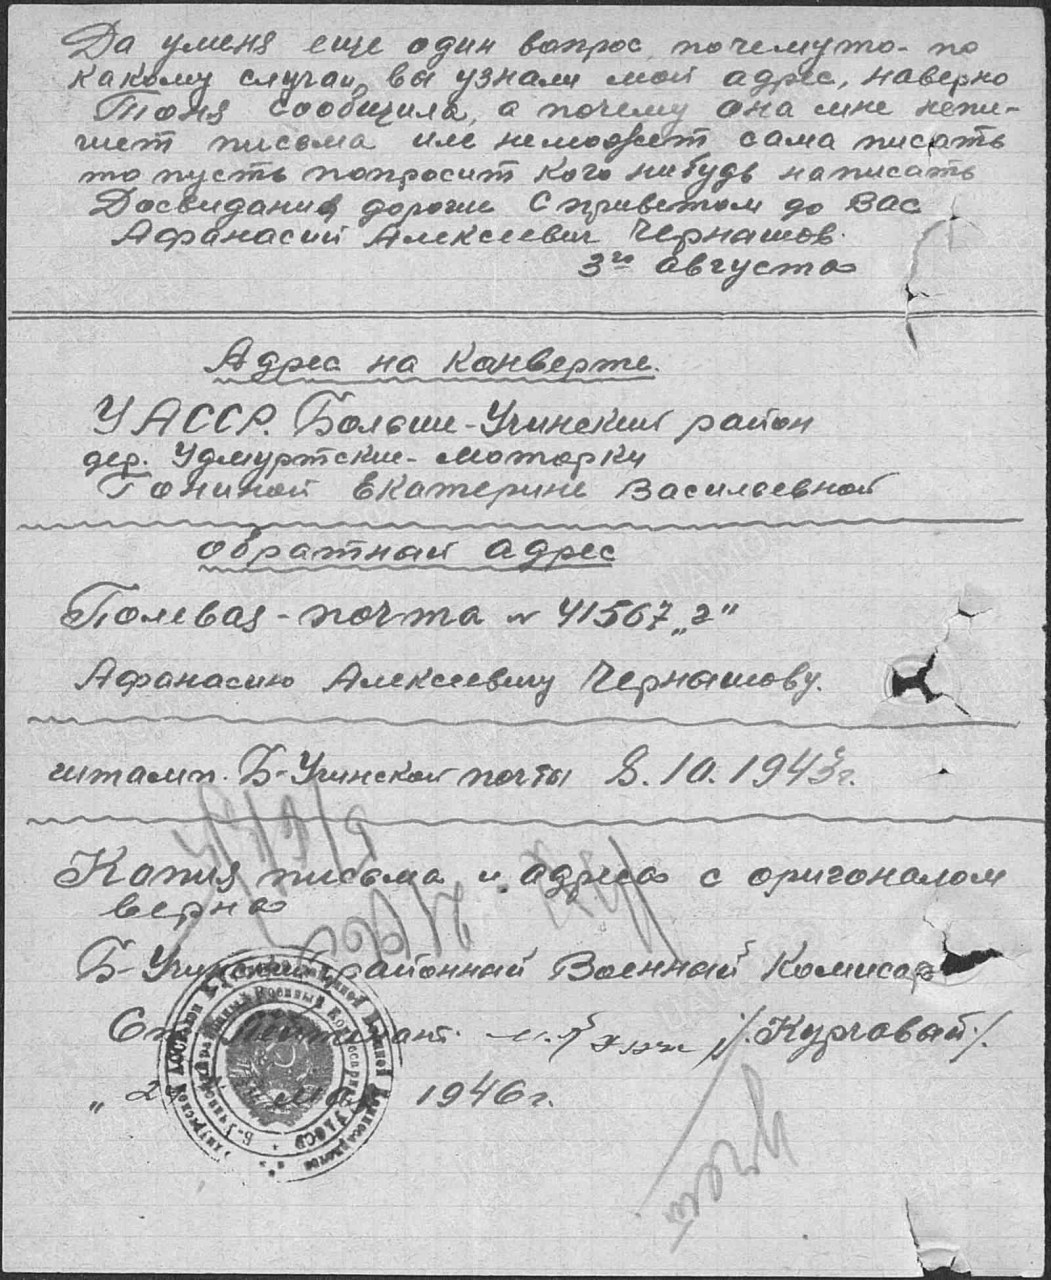 Да уменя еще один вопрос почемуто-по
какому случаи, вы узнали мой адрес, наверно
Тоня сообщила, а почему она мне непи-
шет письма или неможет сама писать
то пусть попросит кого нибудь написать
Досвидание дорогие С приветом до Вас
Афанасий Алексеевич Чернашов.
3го августа
Адрес на Конверте.
УАССР. Больше-Учинский район
дер. Удмуртские-моторки
Гониной Екатерине Васильевной
обратный адрес
Полевая-почта N 41567 „г"
Афанасию Алексеевичу Чернашову.
штамп. Б-Учинской почты 8.10.1943г.
Копия письма и адреса с оригоналом
верна
Б-Учинский районный Военный Комисар
Ст. Лейтенант /Кургавый/.
мая 1946г.